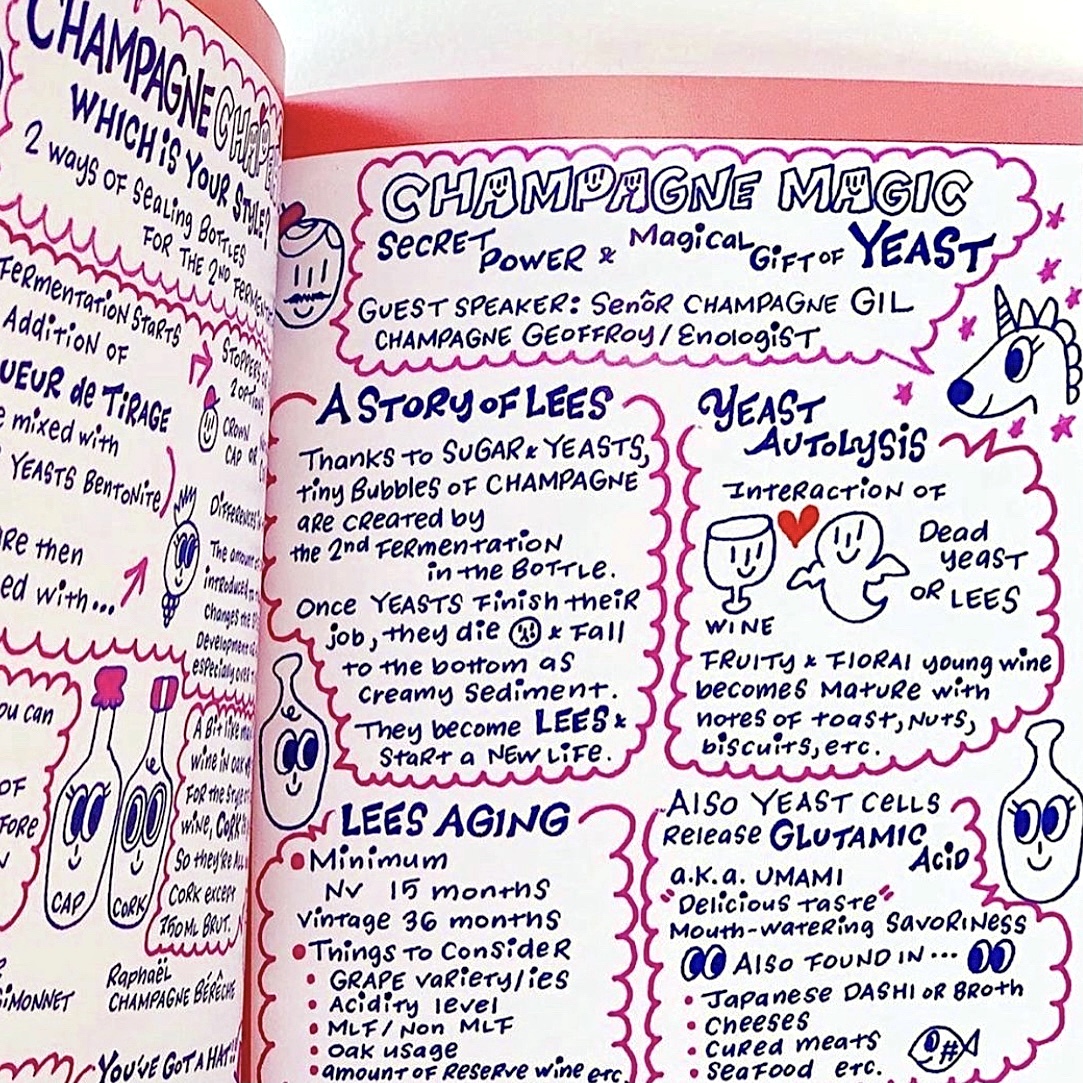 CHAMPAGNE
WHICH is YOUR STYLE?
2 ways of Sealing Bottles
FOR THE 2ND
Fermentation Starts
Addition of
de TiRAGE
mixed with
YEASTS BentoniTe
then
with...
2
CROWN
CAP OR
The
introduced
changes the
Development
especially
can
OF
CAP
CORK
A Bit like
wine in oak
For the
wine, CORK
So they're ALL
CORK except
750ML BRUT.
SIMONNET
Raphaël
CHAMPAGNE BÉRÊCHE
YOU'VE GOT A HAT!!
CHAMPAGNE MAGIC
SecRET POWER & Magical GiFT OF YEAST
GUEST SPEAKER: Señor CHAMPAGNE GIL
CHAMPAGNE GEOFFROY/Enologist
A STORY OF LEES
Thanks to SUGAR & YEASTS,
tiny Bubbles of CHAMPAGNE
are created by
the 2nd Fermentation
in the BOTTLE.
Once YEASTS Finish their
job, they die & Fall
to the bottom as
Creamy Sediment.
They become LEES &
Start a New Life.
YEAST
AUTOLYSiS
Interaction of
Dead
yeast
OR LEES
WINE
FRUITY & FlORAl young wine
becomes Mature with
notes of toast, Nuts,
biscuits, etc.
LEES AGING
Minimum
NV 15 months
Vintage 36 months
Things to Consider
GRAPE vaRiety/ies
Acidity level
MLF/Non MLF
Oak usage
amount of Reserve wine etc.
Also YEAST Cells
Release GLUTAMIC
Acid
a.k.a. UMAMI
"Delicious taste"
Mouth-watering SavoRiness
Also FOUND IN...
Japanese DASHI OR Broth
Cheeses
Cured meats
Seafood etc.
#